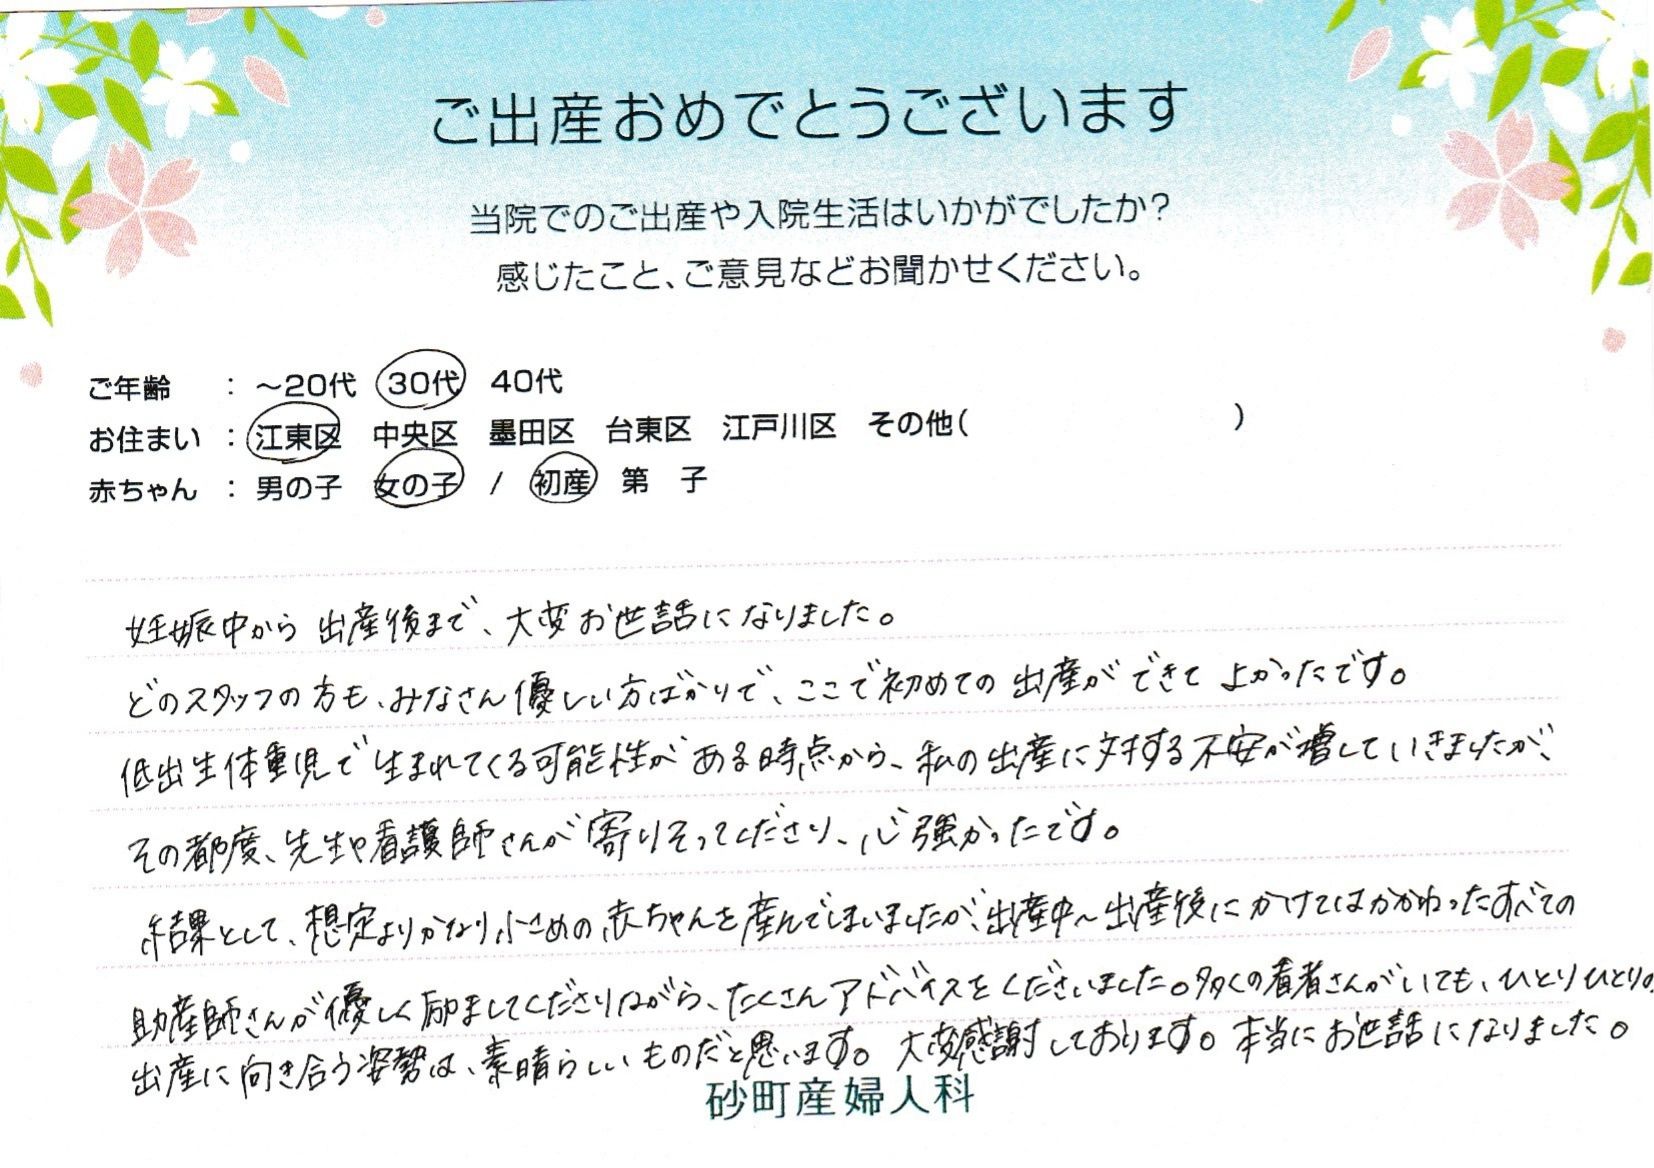 ご出産おめでとうございます
当院でのご出産や入院生活はいかがでしたか?
感じたこと、ご意見などお聞かせください。
ご年齢 : ～20代 30代 40代
お住まい : 江東区 中央区 墨田区 台東区 江戸川区 その他( )
赤ちゃん : 男の子 女の子 / 初産 第 子
妊娠中から出産後まで、大変お世話になりました。
どのスタッフの方も、みなさん優しい方ばかりで、ここで初めての出産ができてよかったです。
低出生体重児で生まれてくる可能性がある時点から、私の出産に対する不安が増していきましたが、
その都度、先生や看護師さんが寄りそってくださり、心強かったです。
結果として、想定よりかなり小さめの赤ちゃんを産んでしまいましたが、出産中～出産後にかけてはかかわったすべての
助産師さんが優しく励ましてくださりながら、たくさんアドバイスをくださいました。多くの看者さんがいても、ひとりひとりの
出産に向き合う姿勢は、素晴らしいものだと思います。大変感謝しております。本当にお世話になりました。
砂町産婦人科